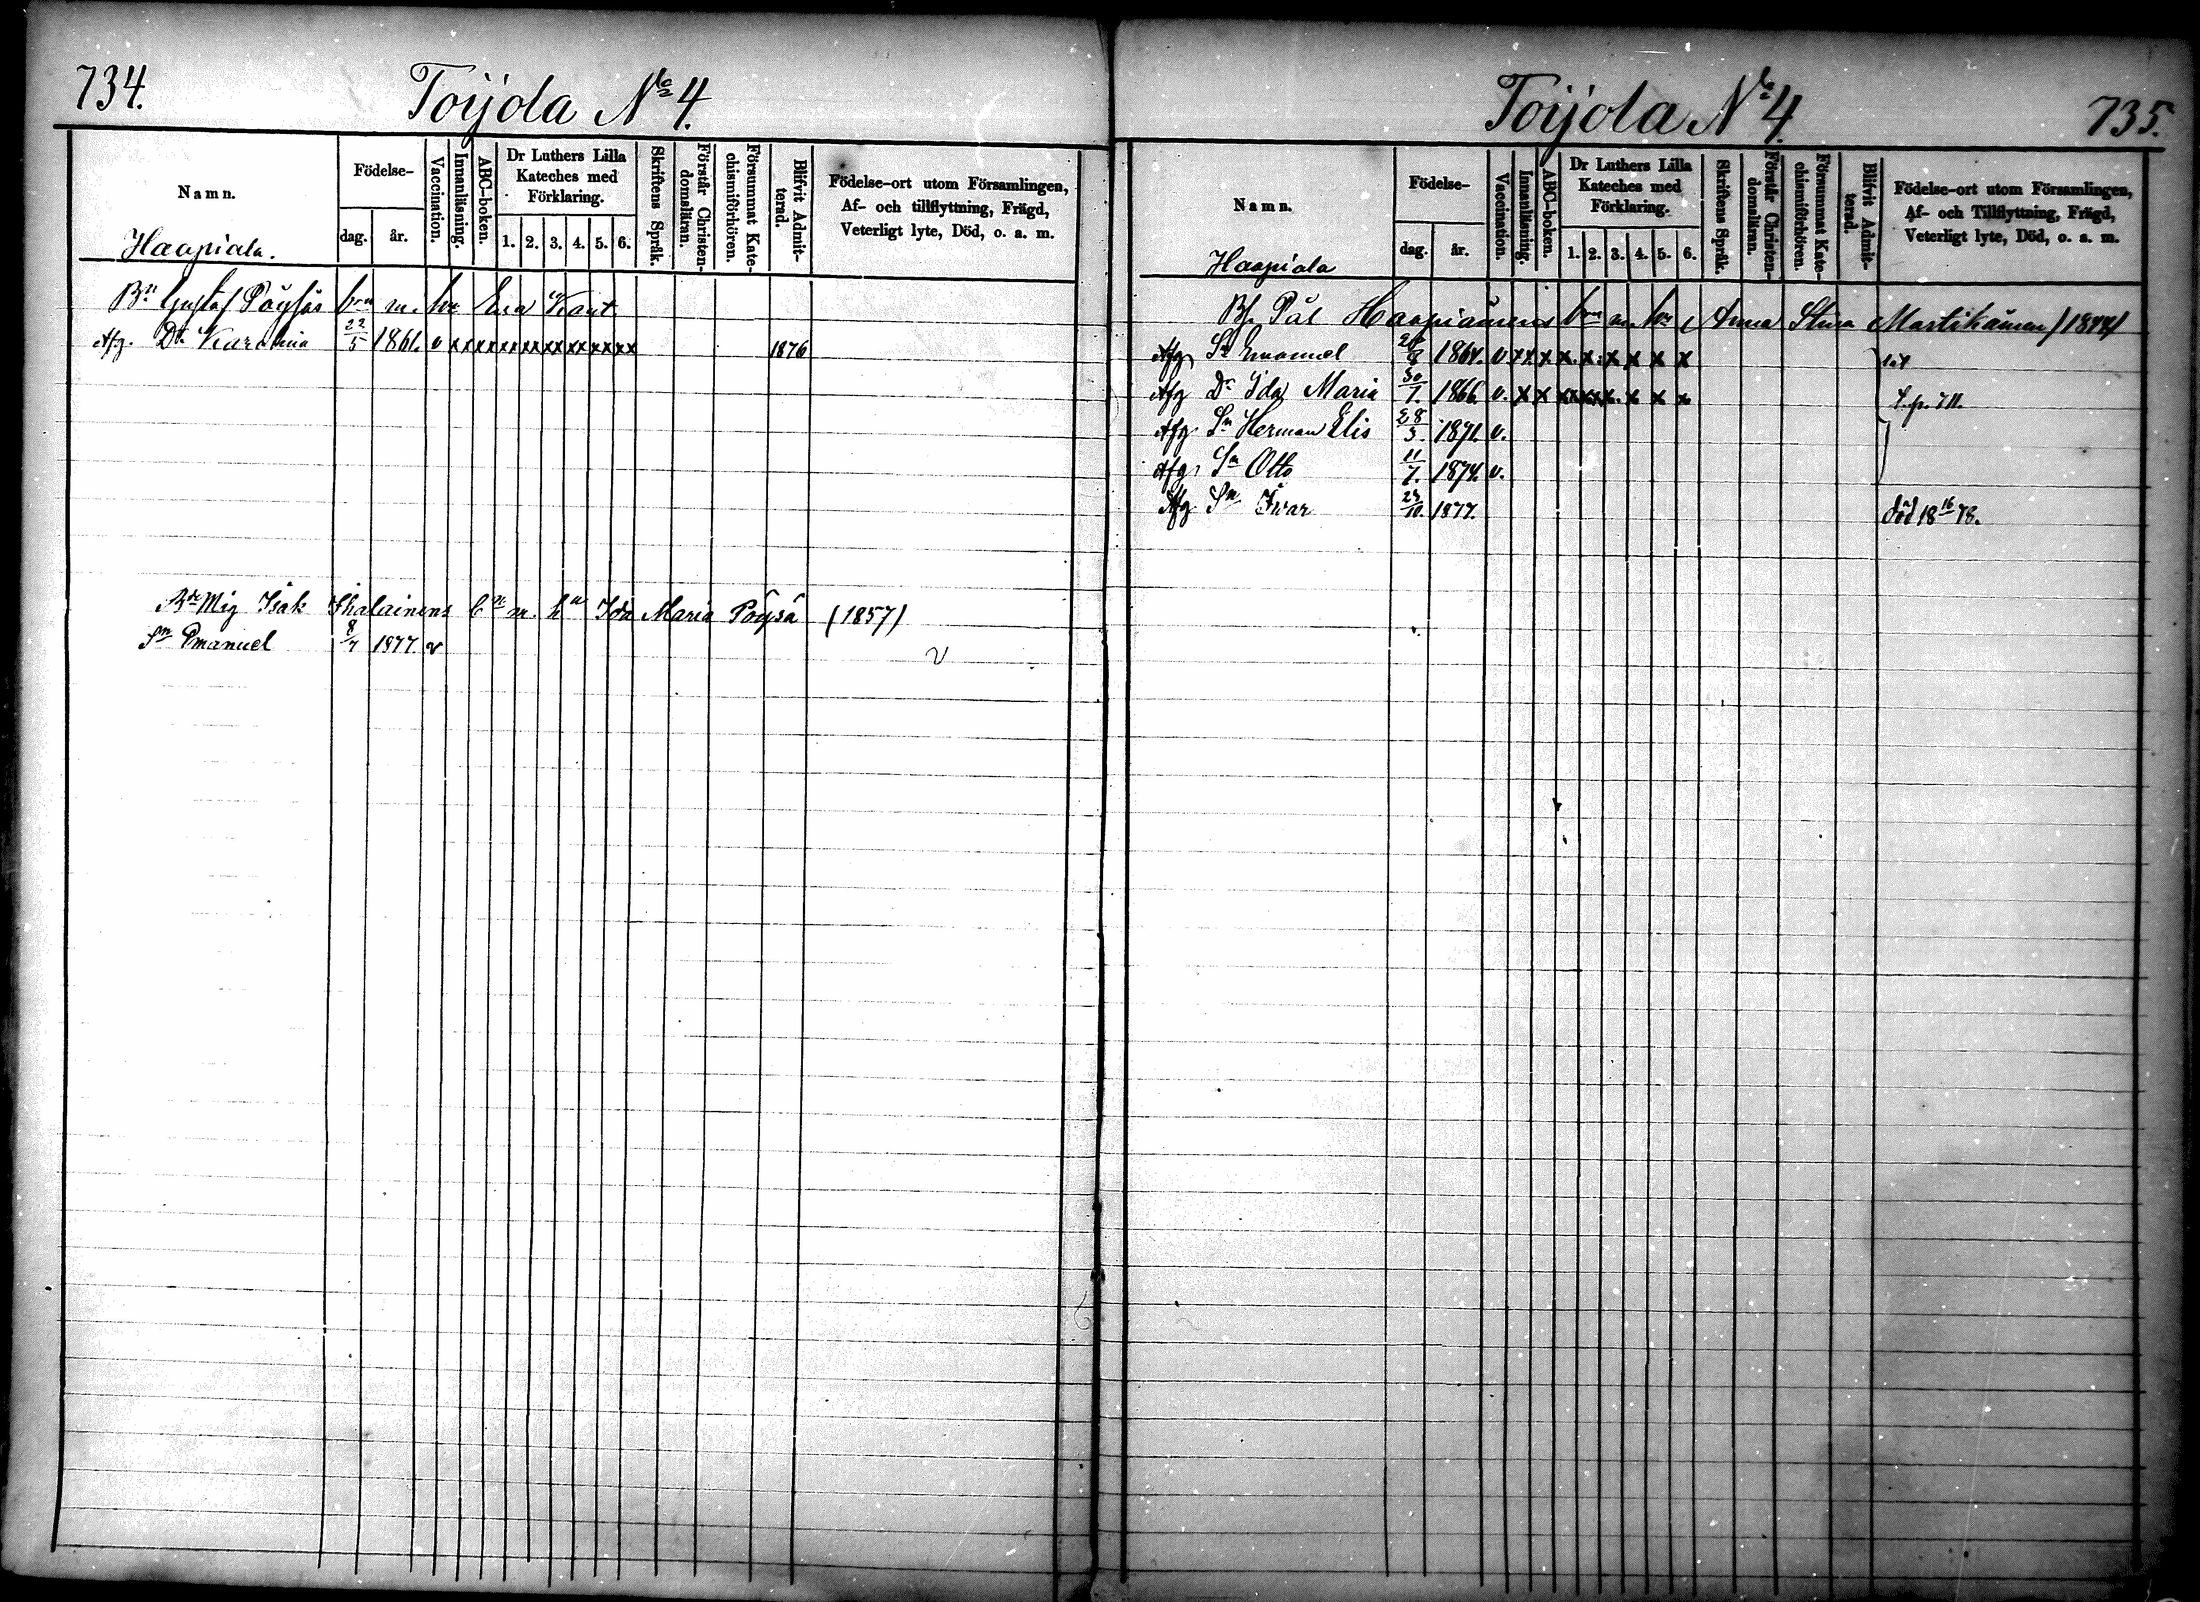 734.
Toijola No 4.
Namn.
Födelse-
dag.
år.
Vaccination.
Innanläsning.
ABC-boken.
Dr Luthers Lilla Kateches med Förklaring.
1. 2. 3. 4. 5. 6.
Skriftens Språk.
Förstår Christendomsläran.
Försummat Katechismiförhören.
Blifvit Admitterad.
Födelse-ort utom Församlingen,
Af- och tillflyttning, Frägd,
Veterligt lyte, Död, o. a. m.
Haapiala.
Bn Gustaf Pöysäs brn m. hu Eva
Afg. Dr Karolina 22/5 1861. v x x x x x x x x x x x x x 1876
Mig Isak Ihalainens bn m. hu Ida Maria Pöysä (1857)
Sn Emanuel 8/7 1877 v v
Toijola No 4.
735.
Namn.
Födelse-
dag.
år.
Vaccination.
Innanläsning.
ABC-boken.
Dr Luthers Lilla Kateches med Förklaring.
1. 2. 3. 4. 5. 6.
Skriftens Språk.
Förstår Christendomsläran.
Försummat Katechismiförhören.
Blifvit Admitterad.
Födelse-ort utom Församlingen,
Af- och Tillflyttning, Frägd,
Veterligt lyte, Död, o. s. m.
Haapiala
Pål Haapiainens brn m. hu Anna Stina Martikainen
Afg Sn Emanuel 1864. v x x x x x x x x x
Afg Dr Ida Maria 30/1. 1866. v. x x x x x x x x x
Afg Sn Herman Elis 28/3. 1871. v.
Afg Sn Otto 11/7. 1874. v.
Afg Sn Ivar 23/10. 1877. död 18 16 78.